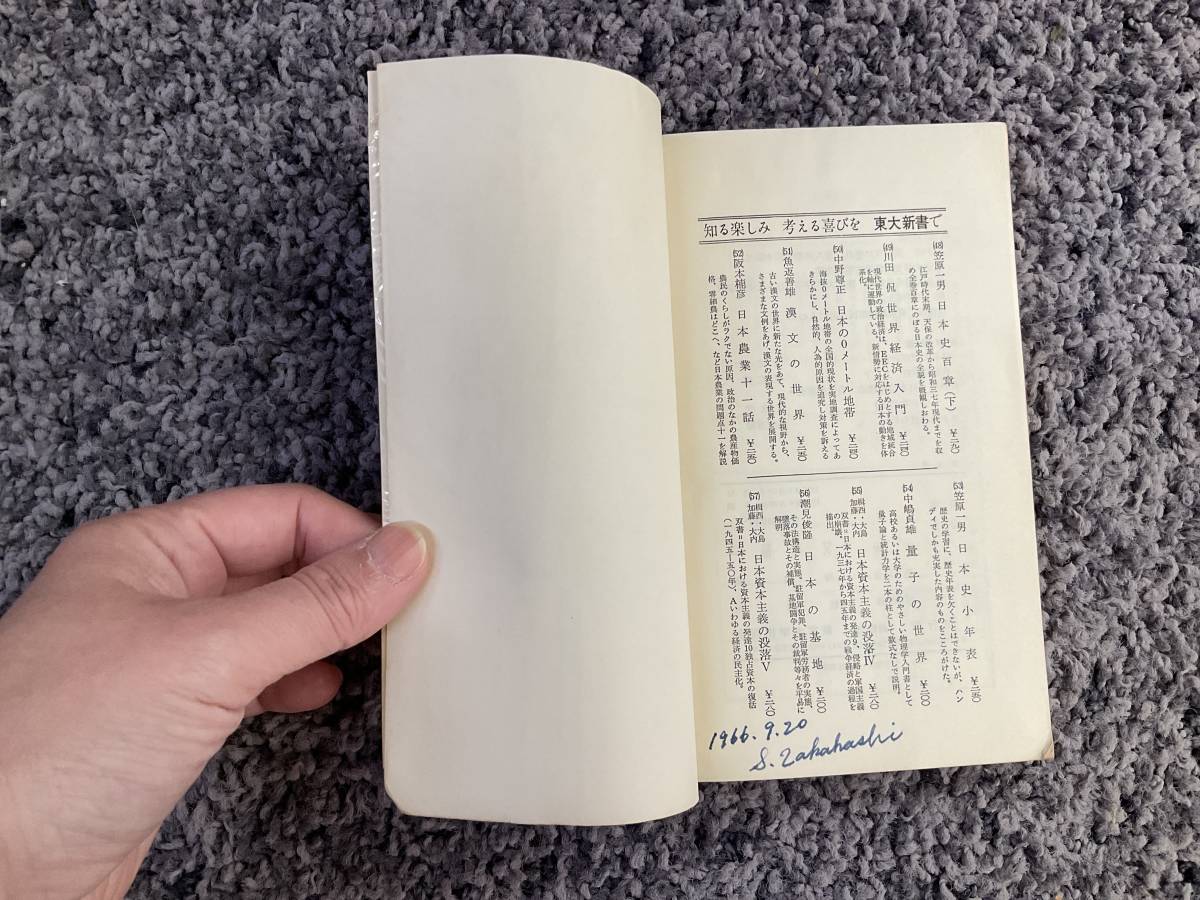 知る楽しみ 考える喜びを 東大新書で
(48)笠原一男 日本史百章(下) ¥二九〇
江戸時代末期、天保の改革から昭和三七年現代までを収
め全巻百章にのぼる日本史の全貌を概観しおわる。
(49)川田侃 世界経済入門 ¥二四〇
現代世界の政治経済は、EECをはじめとする地域統合
を軸に運動している。新情勢に対応する日本の動きを体
系化。
(50)中野尊正 日本の0メートル地帯 ¥二四〇
海抜0メートル地帯の全国的現状を実地調査によってあ
きらかにし、自然的、人為的原因を追究し対策を訴える
(51)魚返善雄 漢文の世界 ¥二五〇
古い漢文の世界に新たな光をあて、現代的な視野から、
さまざまな文例をあげ、漢文の表現する世界を展開する。
(52)阪本楠彦 日本農業十一話 ¥二五〇
農民のくらしがラクでない原因、政治のなかの農産物価
格、零細農はどこへ、など日本農業の問題点十一を解説
(53)笠原一男 日本史小年表 ¥二五〇
歴史の学習に、歴史年表を欠くことはできないが、ハン
ディでしかも充実した内容のものをこころがけた。
(54)中嶋貞雄 量子の世界 ¥二〇〇
高校あるいは大学のためのやさしい物理学入門書として
量子論と統計力学を二本の柱として数式なしで説明。
(55)楫西・大島・加藤・大内 日本資本主義の没落Ⅳ ¥二八〇
双書=日本における資本主義の発達9、侵略と軍国主義
の崩壊。一九三七年から四五年までの戦争経済の過程を
描出。
(56)潮見俊隆 日本の基地 ¥二〇〇
その法構造と実態、駐留軍犯罪、駐留軍労務者の実態、
墜落事故とその補償、基地闘争とその裁判等々を平易に
解明
(57)楫西・大島・加藤・大内 日本資本主義の没落Ⅴ ¥二八〇
双書=日本における資本主義の発達10独占資本の復活
(一九四五—五〇年)、Aいわゆる経済の民主化。
1966.9.20
S. Takahashi